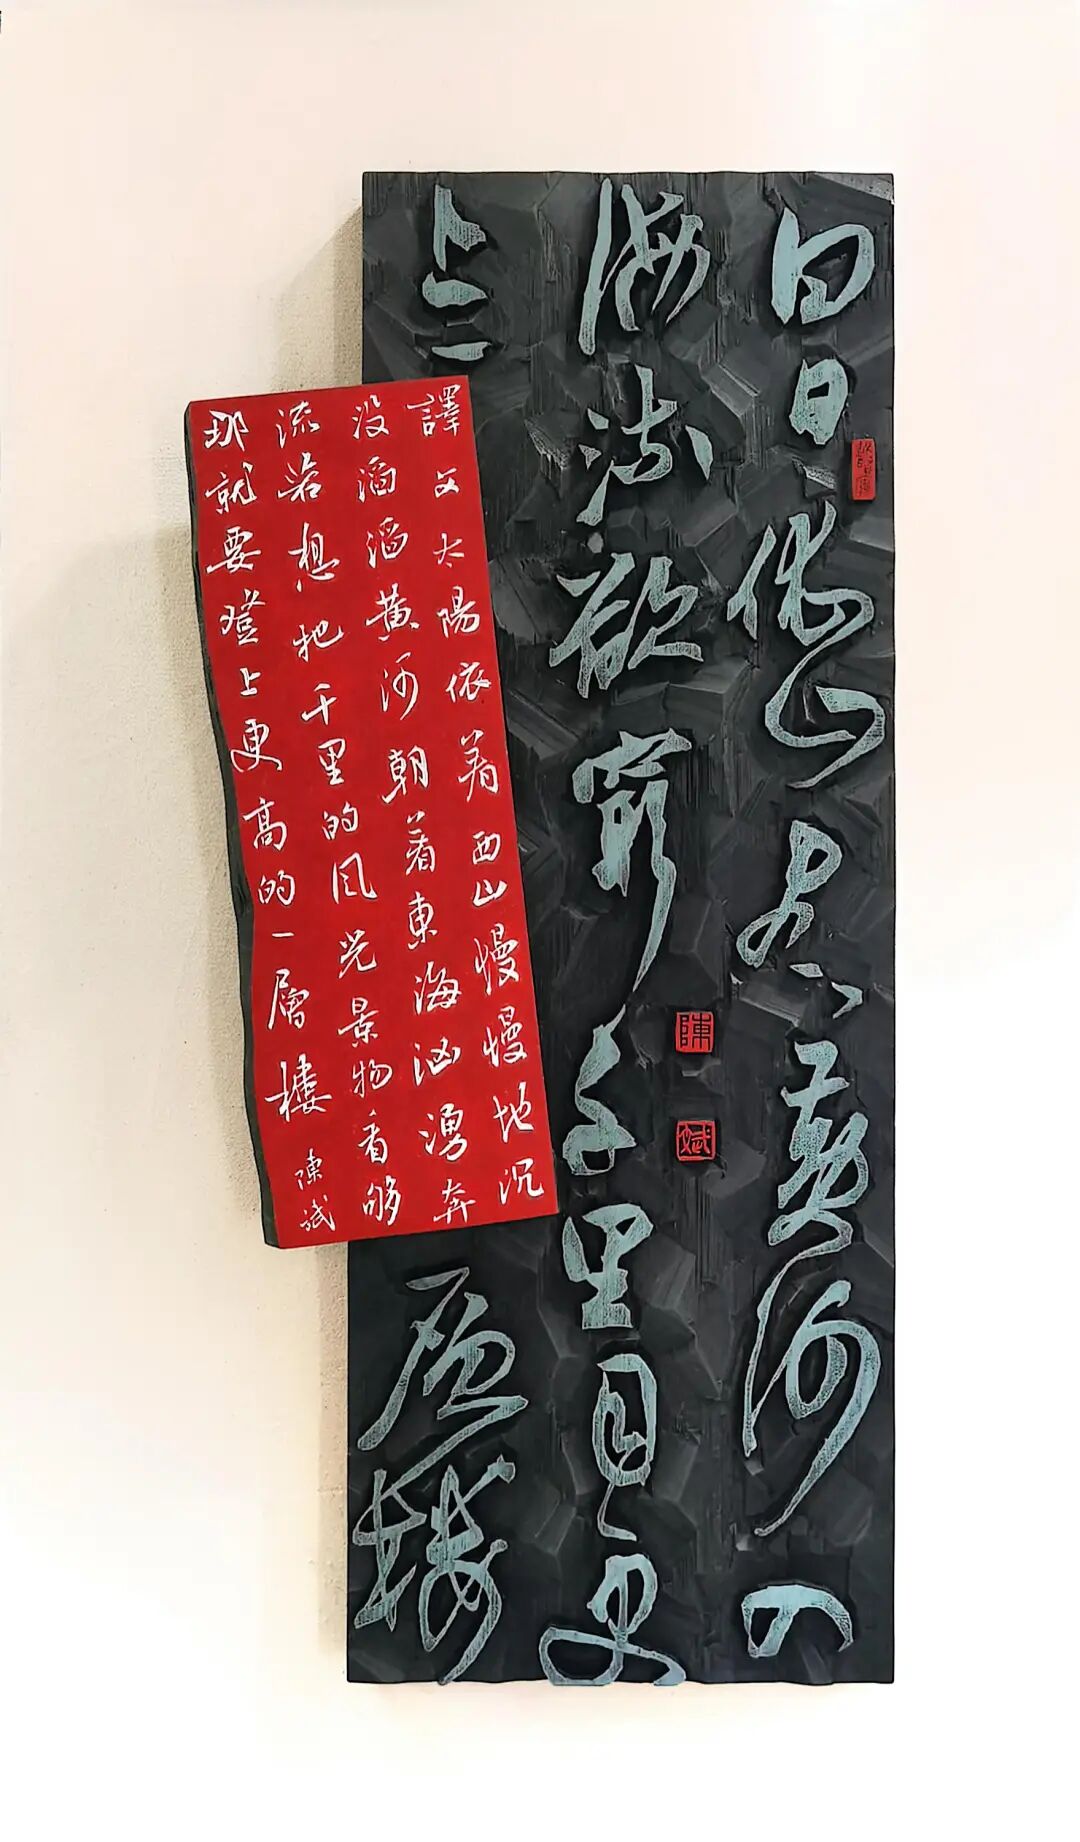 白日依山尽黄河入
海流欲穷千里目更
上一
层楼
陳
斌
譯文太陽依着西山慢慢地沉
没滔滔黄河朝着東海汹湧奔
流若想把千里的风光景物看够
那就要登上更高的一層樓
陳斌